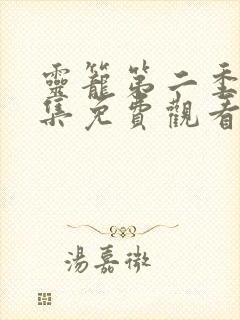 靈籠第二季
集免費觀看
湯嘉微